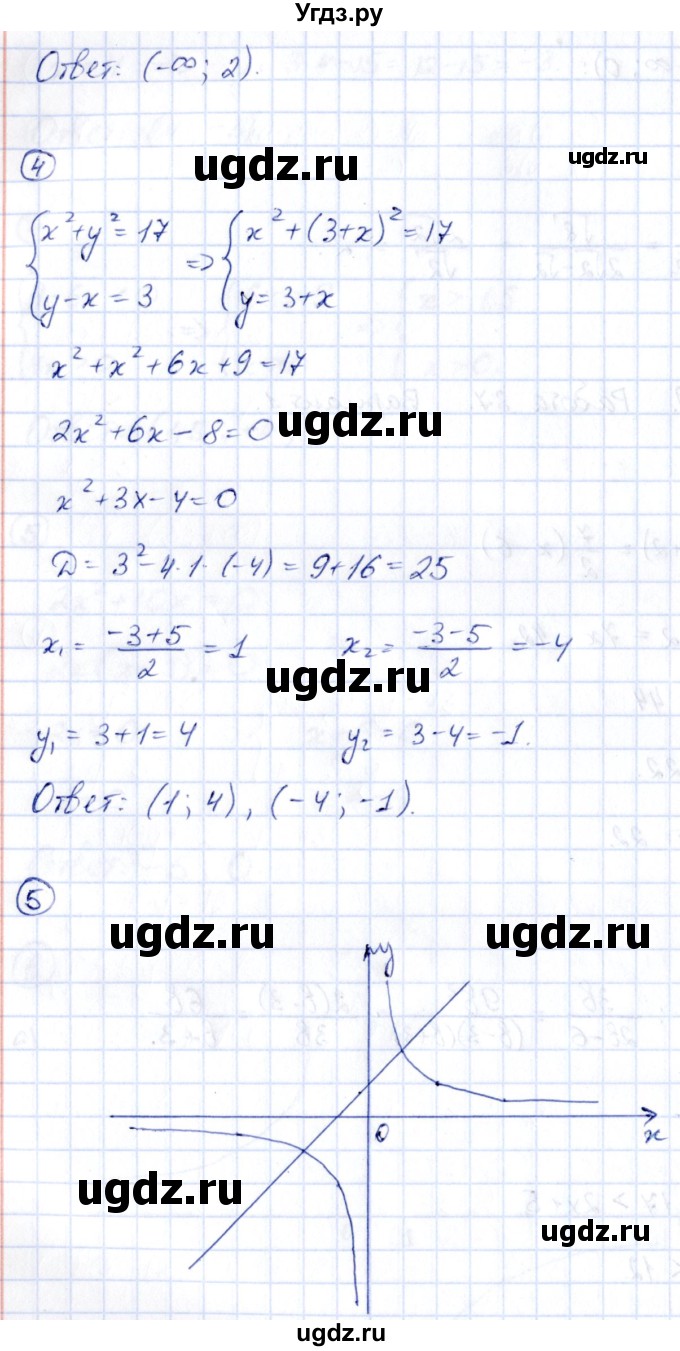 Угдз.ру
Ответ: (-∞; 2).
ugdz.ru
ugdz.ru
④
{x²+y²=17 => {x²+(3+x)²=17
{y-x=3 {y=3+x
x²+x²+6x+9=17
2x²+6x-8=0
ugdz.ru
x²+3x-4=0
D=3²-4·1·(-4)=9+16=25
x₁=(-3+5)/2=1 x₂=(-3-5)/2=-4
ugdz.ru
y₁=3+1=4 y₂=3-4=-1.
Ответ: (1; 4), (-4; -1).
⑤
ugdz.ru
ugdz.ru
y
0
x
ugdz.ru
ugdz.ru
ugdz.ru